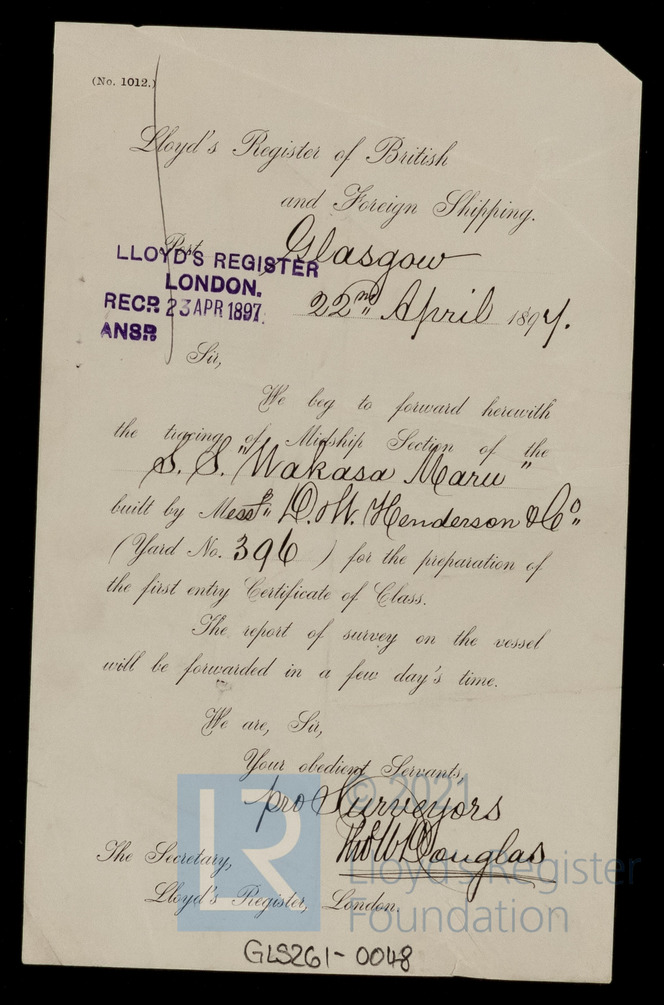 (No. 1012.)
Lloyd's Register of British
and Foreign Shipping.
Port
Glasgow
LLOYD'S REGISTER
LONDON.
RECD. 23 APR 1897
ANSD.
22nd April 1897.
Sir,
We beg to forward herewith
the tracing of Midship Section of the
S.S. "Wakasa Maru"
built by Messrs D. & W. Henderson & Co
(Yard No. 396) for the preparation of
the first entry Certificate of Class.
The report of survey on the vessel
will be forwarded in a few day's time.
We are, Sir,
Your obedient Servants,
pro Surveyors
Douglas
The Secretary,
Lloyd's Register, London.
© 2021
LR
Lloyd's Register
Foundation
GLS261-0048